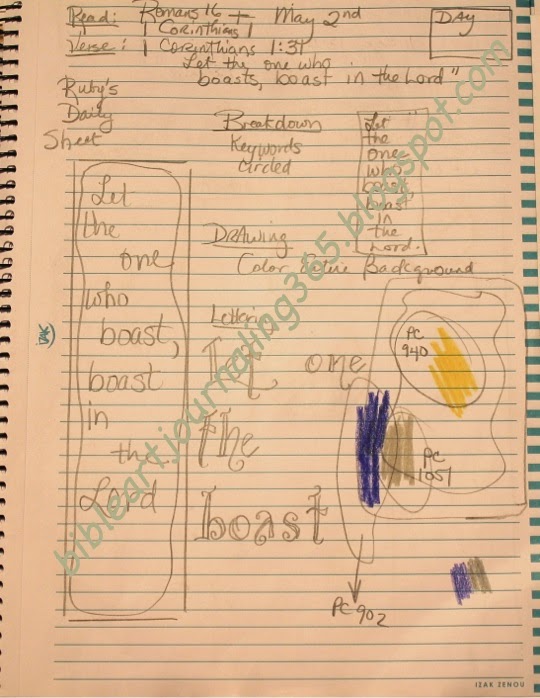 Read: Romans 16 + May 2nd
1 Corinthians 1
DAY
Verse: 1 Corinthians 1:31
"Let the one who
boasts, boast in the Lord"
Ruby's
Daily
Sheet
Breakdown
Keywords
Circled
Let
the
one
who
boast
boast
in
the
Lord.
Let
the
one
who
boast,
boast
in
the
Lord
Drawing
Color Entire Background
Lettering
Let one
the
boast
PC
940
PC
1051
PC 902
DAK
bibleartjournaling365.blogspot.com
IZAK ZENOU